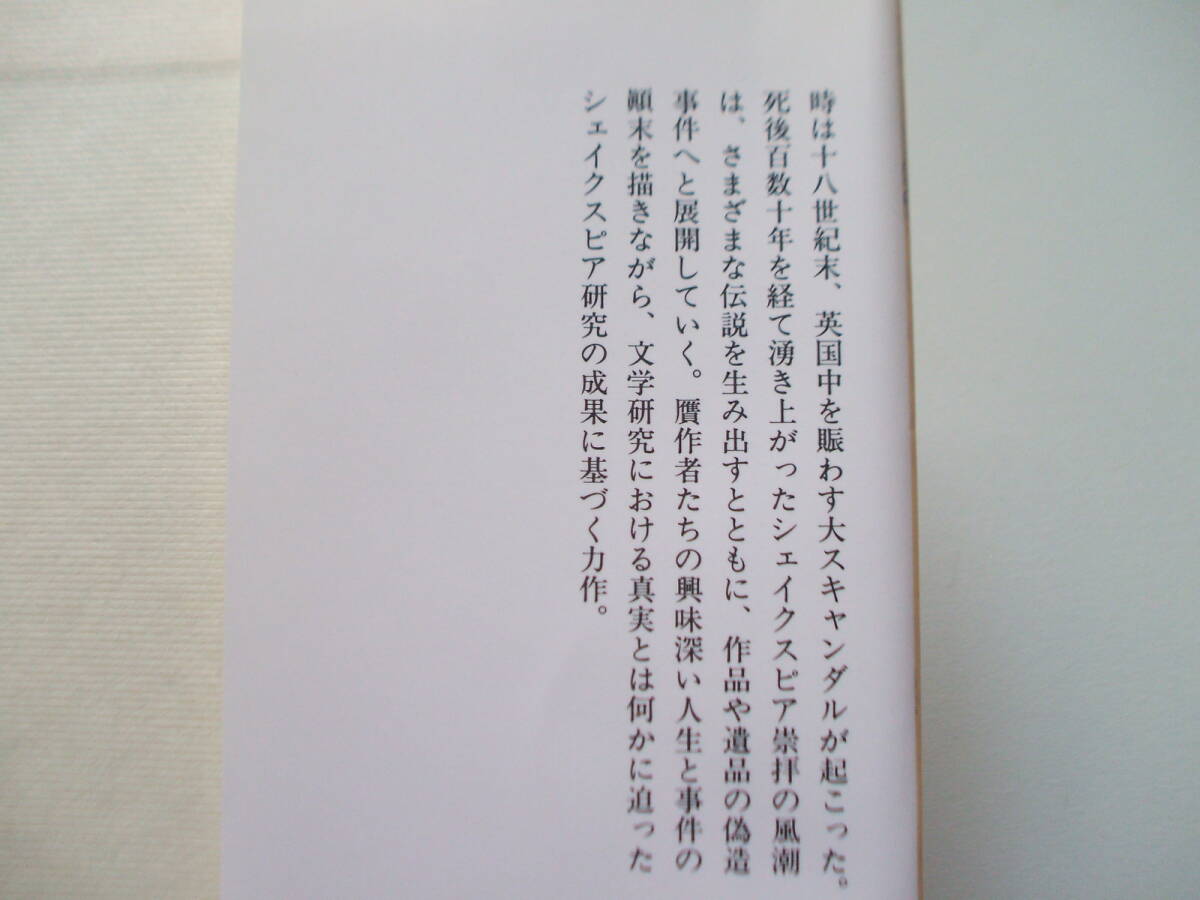 時は十八世紀末、英国中を賑わす大スキャンダルが起こった。
死後百数十年を経て湧き上がったシェイクスピア崇拝の風潮
は、さまざまな伝説を生み出すとともに、作品や遺品の偽造
事件へと展開していく。贋作者たちの興味深い人生と事件の
顛末を描きながら、文学研究における真実とは何かに迫った
シェイクスピア研究の成果に基づく力作。